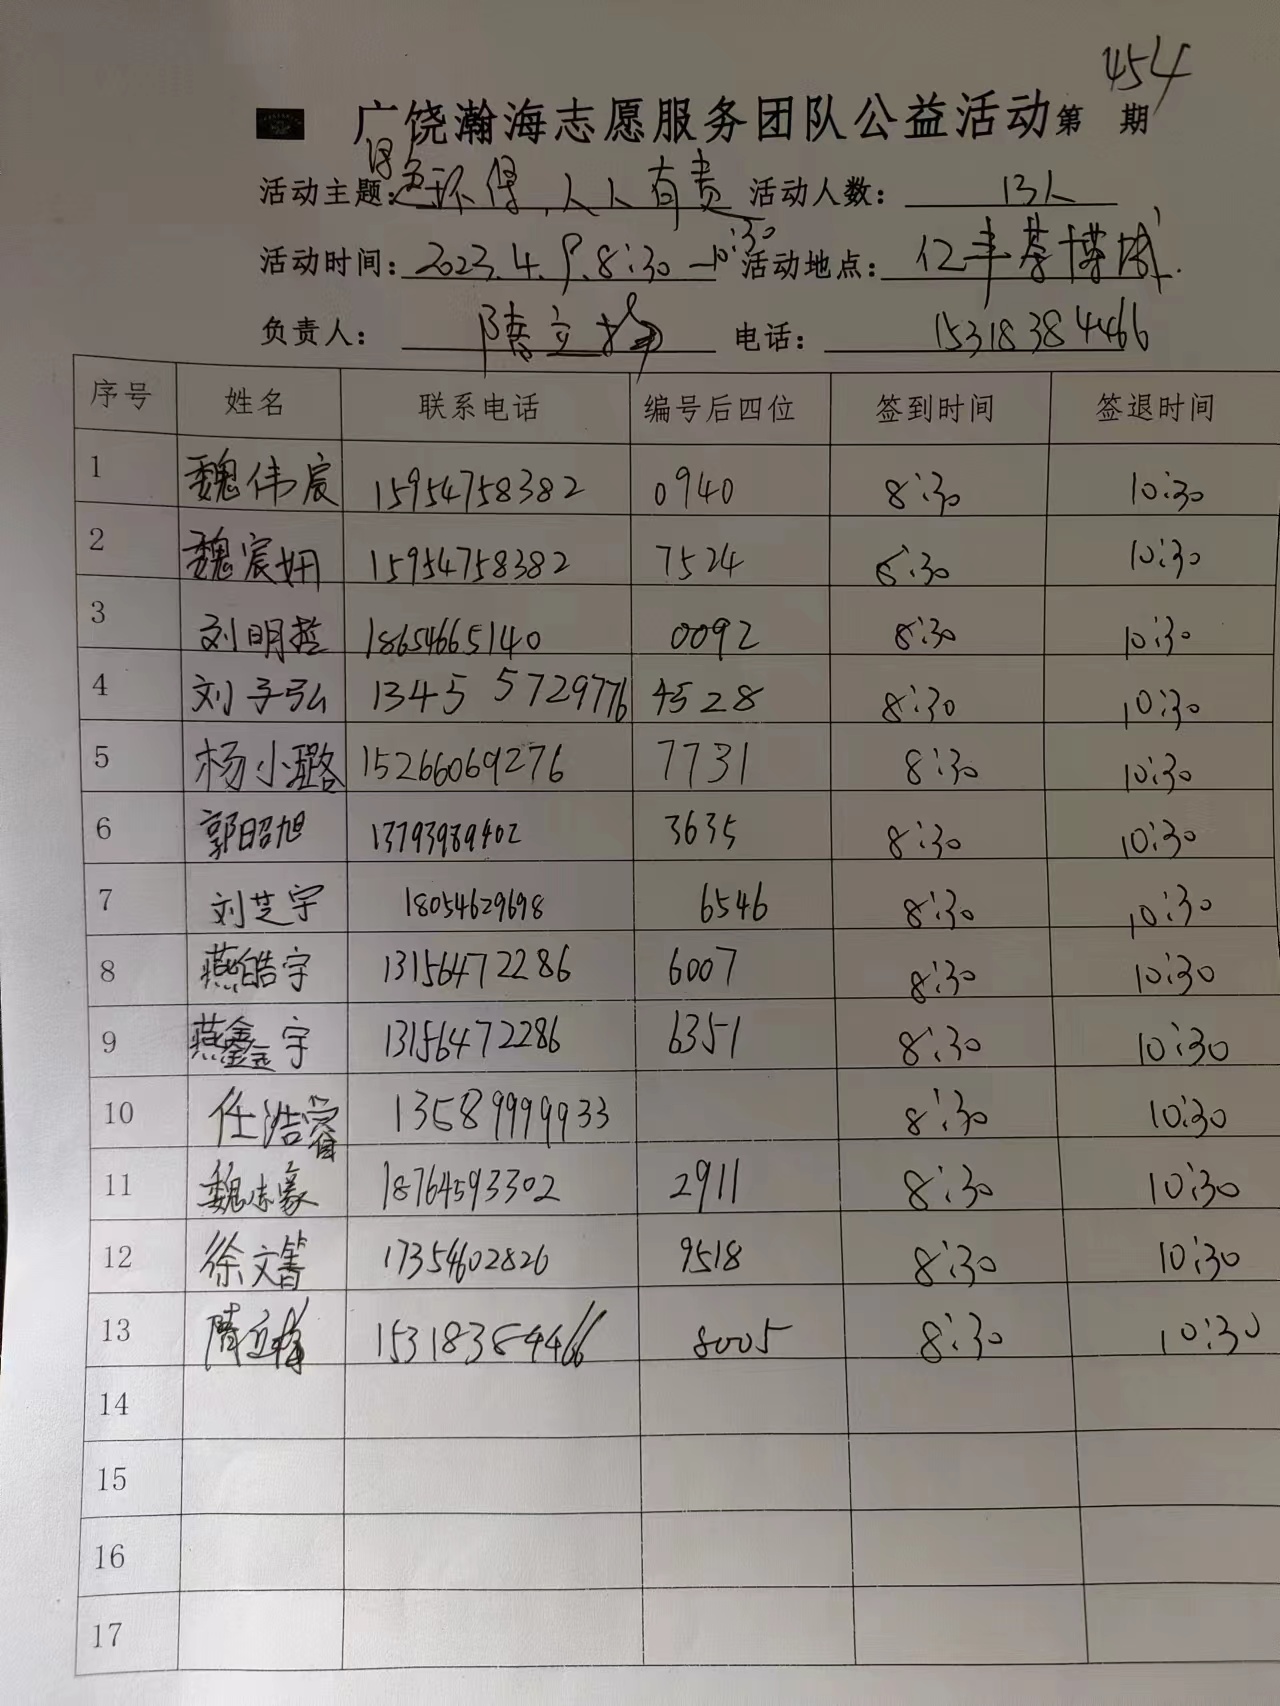 454
广饶瀚海志愿服务团队公益活动第 期
活动主题: 环保,人人有责 活动人数: 13人
活动时间: 2023.4.9.8:30-10:30 活动地点:
负责人: 电话: 15318384466
序号 姓名 联系电话 编号后四位 签到时间 签退时间
1 魏伟宸 15954758382 0940 8:30 10:30
2 魏宸妍 15954758382 7524 8:30 10:30
3 刘明哲 18654665140 0092 8:30 10:30
4 刘子弘 13455729776 4528 8:30 10:30
5 杨小璐 15266069276 7731 8:30 10:30
6 郭昭旭 13793989402 3635 8:30 10:30
7 刘芝宇 18054629698 6546 8:30 10:30
8 燕皓宇 13156472286 6007 8:30 10:30
9 燕鑫宇 13156472286 6351 8:30 10:30
10 任浩 13589999933 8:30 10:30
11 魏志豪 18764593302 2911 8:30 10:30
12 徐文 17354602826 9518 8:30 10:30
13 15318384466 8005 8:30 10:30
14
15
16
17